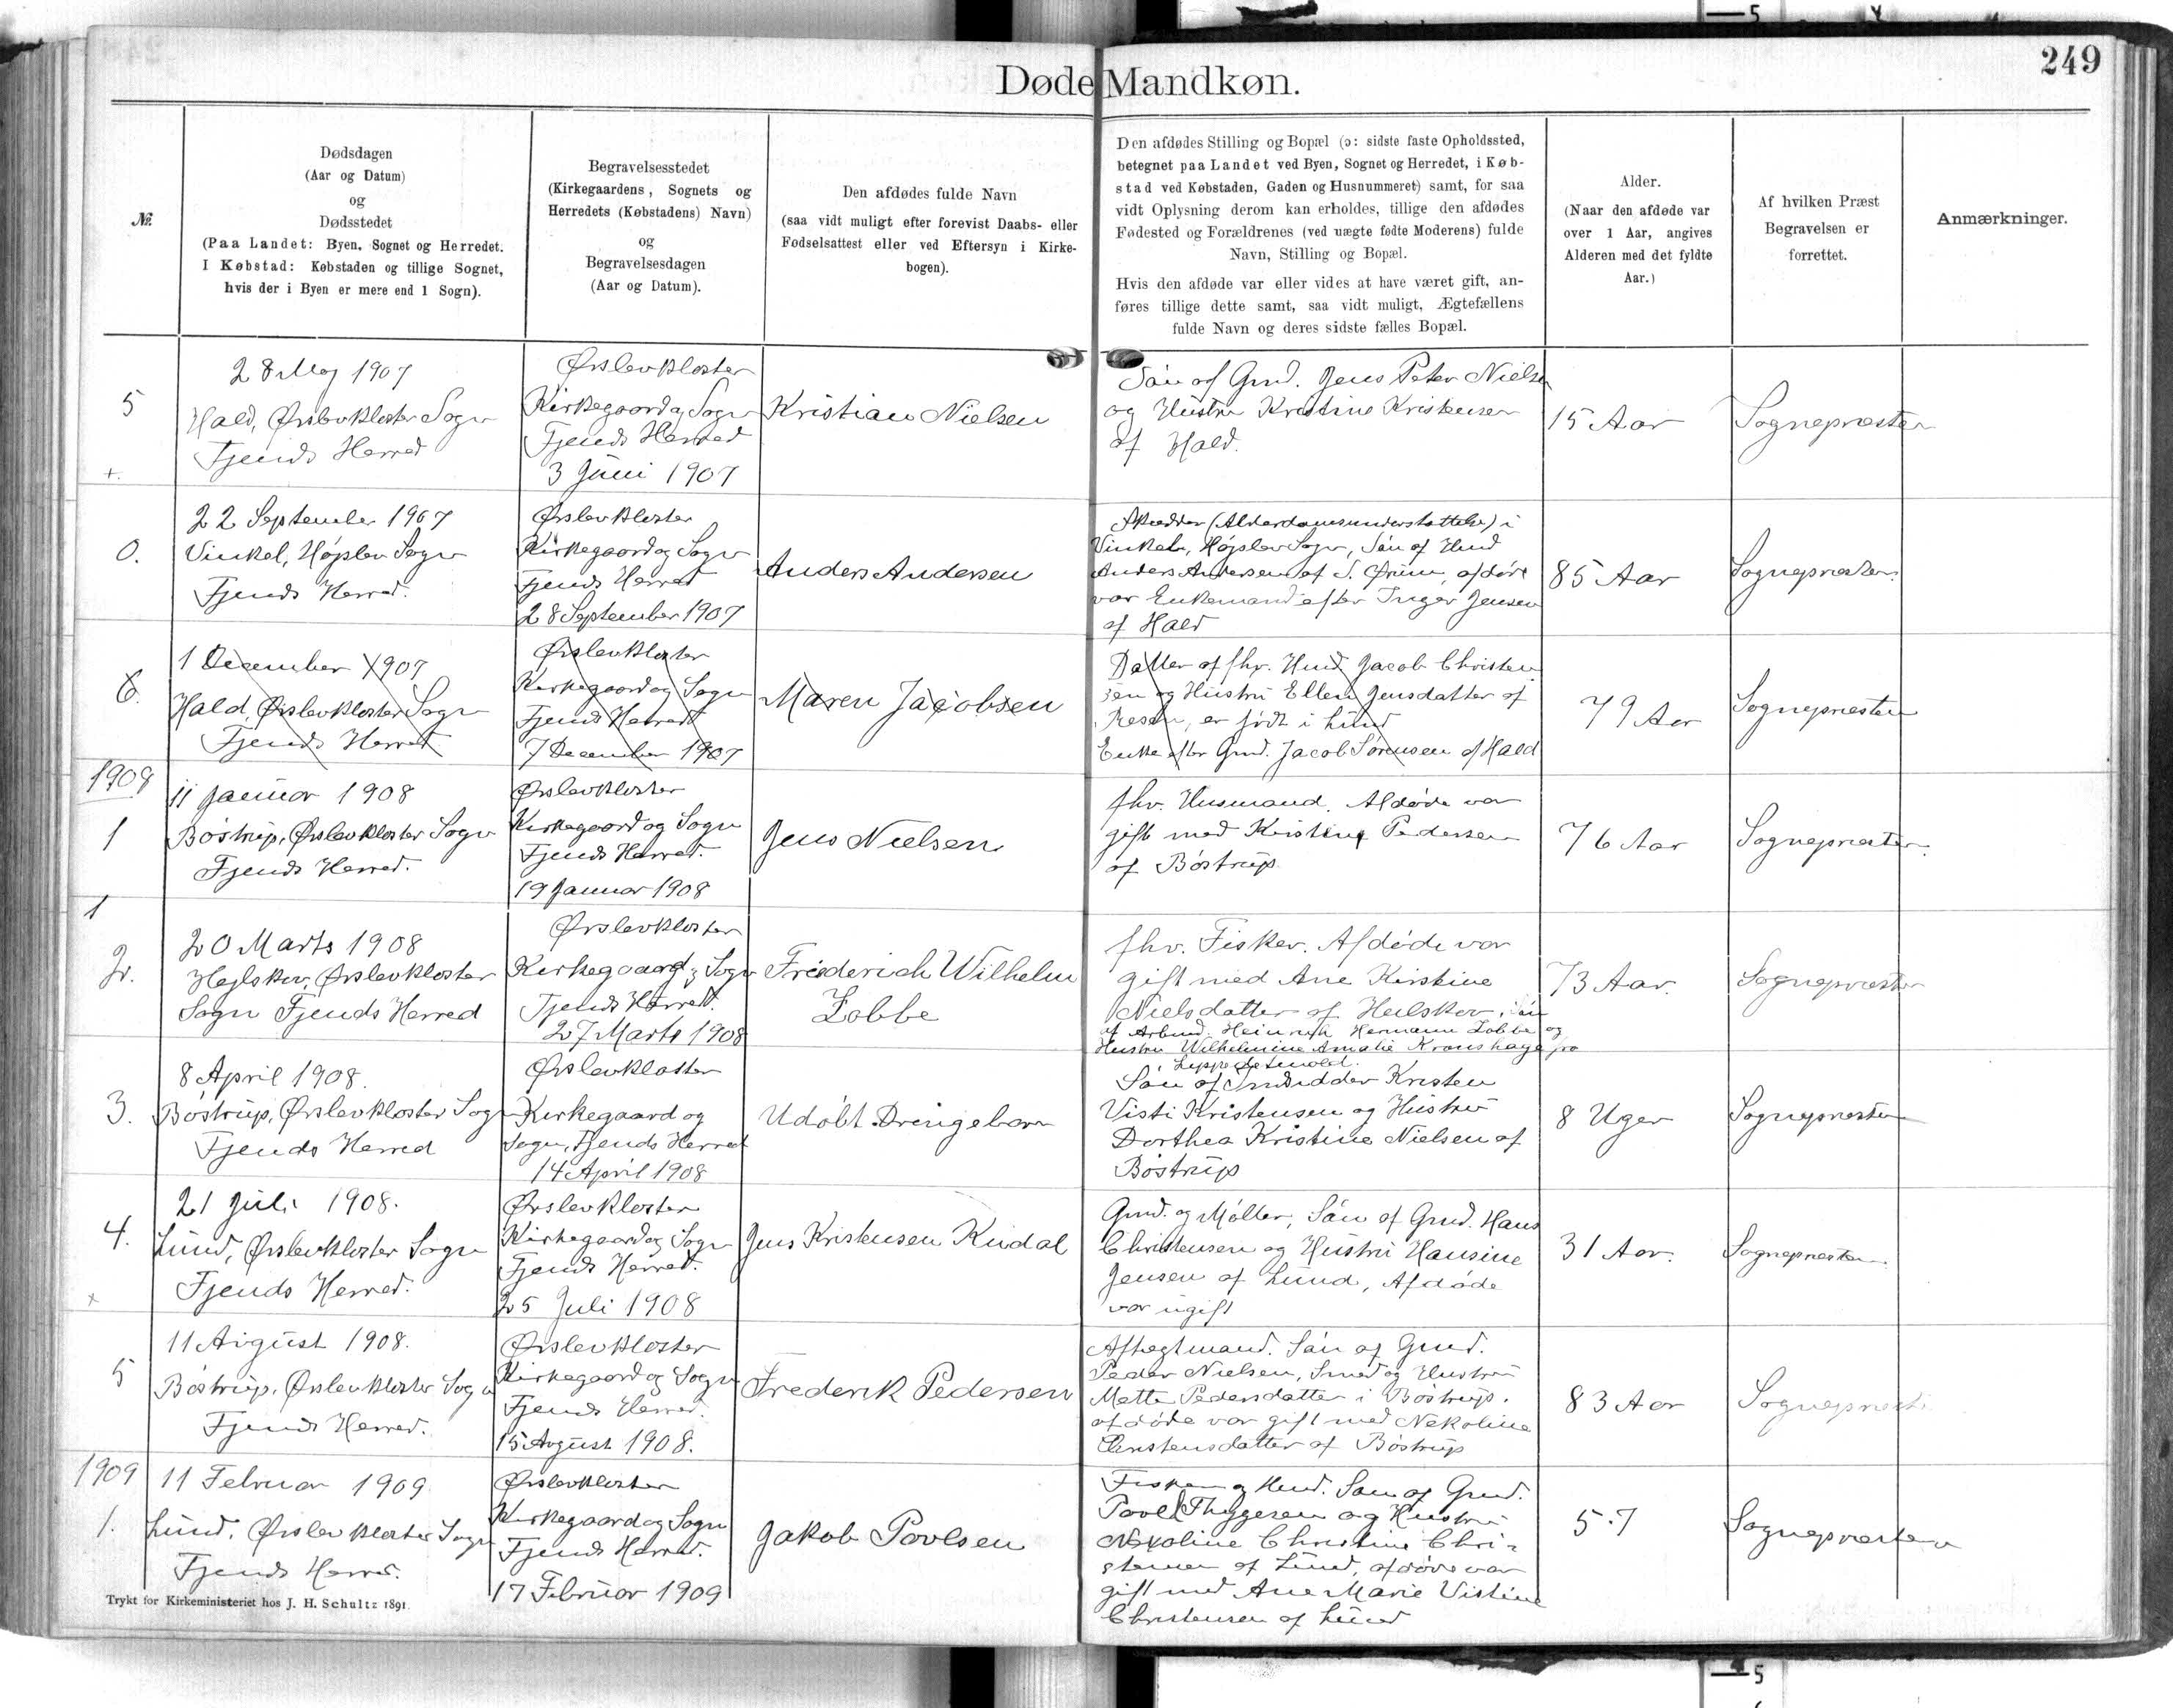 249
Døde Mandkøn.
№.
Dødsdagen
(Aar og Datum)
og
Dødsstedet
(Paa Landet: Byen, Sognet og Herredet.
I Købstad: Købstaden og tillige Sognet,
hvis der i Byen er mere end 1 Sogn).
Begravelsesstedet
(Kirkegaardens, Sognets og
Herredets (Købstadens) Navn)
og
Begravelsesdagen
(Aar og Datum).
Den afdødes fulde Navn
(saa vidt muligt efter forevist Daabs- eller
Fødselsattest eller ved Eftersyn i Kirke-
bogen).
Den afdødes Stilling og Bopæl (ɔ: sidste faste Opholdssted,
betegnet paa Landet ved Byen, Sognet og Herredet, i Køb-
stad ved Købstaden, Gaden og Husnummeret) samt, for saa
vidt Oplysning derom kan erholdes, tillige den afdødes
Fødested og Forældrenes (ved uægte fødte Moderens) fulde
Navn, Stilling og Bopæl.
Hvis den afdøde var eller vides at have været gift, an-
føres tillige dette samt, saa vidt muligt, Ægtefællens
fulde Navn og deres sidste fælles Bopæl.
Alder.
(Naar den afdøde var
over 1 Aar, angives
Alderen med det fyldte
Aar.)
Af hvilken Præst
Begravelsen er
forrettet.
Anmærkninger.
5
+.
28 Maj 1907
Hald, Ørslevkloster Sogn
Fjends Herred
Ørslevkloster
Kirkegaard og Sogn
Fjends Herred
3 Juni 1907
Kristian Nielsen
Søn af Gmd. Jens Peter Nielsen
og Hustru Kristine Kristensen
af Hald.
15 Aar
Sognepræsten
0.
22 September 1907
Vinkel, Højslev Sogn
Fjends Herred.
Ørslevkloster
Kirkegaard og Sogn
Fjends Herred
28 September 1907
Anders Andersen
Skrædder (Alderdomsunderstøttelse) i
Vinkel, Højslev Sogn, Søn af Hmd
Anders Andersen af S. Ørum, afdøde
var Enkemand efter Inger Jensen
af Hald
85 Aar
Sognepræsten.
6.
1 December 1907
Hald, Ørslevkloster Sogn
Fjends Herred
Ørslevkloster
Kirkegaard og Sogn
Fjends Herred
7 December 1907
Maren Jacobsen
Datter af fhv. Hmd. Jacob Christen
sen og Hustru Ellen Jensdatter af
Resen, er født i Lund
Enke efter Gmd. Jacob Sørensen af Hald
79 Aar
Sognepræsten
1908
1
11 Januar 1908
Bøstrup, Ørslevkloster Sogn
Fjends Herred.
Ørslevkloster
Kirkegaard og Sogn
Fjends Herred.
19 Januar 1908
Jens Nielsen
fhv. Husmand. Afdøde var
gift med Kristine Pedersen
af Bøstrup
76 Aar
Sognepræsten.
1
2.
20 Marts 1908
Hejlskov, Ørslevkloster
Sogn Fjends Herred
Ørslevkloster
Kirkegaard og Sogn
Fjends Herred.
27 Marts 1908
Friederich Wilhelm
Lobbe
fhv. Fisker. Afdøde var
gift med Ane Kirstine
Nielsdatter af Heilskov, Søn
af Arbmd. Heinrich Hermann Lobbe og
Hustru Wilhelmine Amalie Kronshage fra
Lippe Detmold.
73 Aar.
Sognepræsten
3.
8 April 1908.
Bøstrup, Ørslevkloster Sogn
Fjends Herred
Ørslevkloster
Kirkegaard og
Sogn, Fjends Herred
14 April 1908
Udøbt Drengebarn
Søn af Kristen
Visti Kristensen og Hustru
Dorthea Kristine Nielsen af
Bøstrup
8 Uger
Sognepræsten
4.
x
21 Juli 1908.
Lund, Ørslevkloster Sogn
Fjends Herred.
Ørslevkloster
Kirkegaard og Sogn
Fjends Herred.
25 Juli 1908
Jens Kristensen Kudal
Gmd. og Møller, Søn af Gmd. Hans
Christensen og Hustru Hansine
Jensen af Lund, Afdøde
var ugift
31 Aar.
Sognepræsten.
5
11 August 1908.
Bøstrup, Ørslevkloster Sogn
Fjends Herred.
Ørslevkloster
Kirkegaard og Sogn
Fjends Herred.
15 August 1908.
Frederik Pedersen
Aftægtmand. Søn af Gmd.
Peder Nielsen, Smed og Hustru
Mette Pedersdatter i Bøstrup.
afdøde var gift med Nikoline
Christensdatter af Bøstrup
83 Aar
Sognepræsten
1909
1.
11 Februar 1909
Lund, Ørslevkloster Sogn
Fjends Herred.
Ørslevkloster
Kirkegaard og Sogn
Fjends Herred.
17 Februar 1909
Jakob Povlsen
Fisker og Hmd. Søn af Gmd.
Povl Thygesen og Hustru
Nikoline Christine Chri-
stensen af Lund, afdøde var
gift med Ane Marie Vistine
Christensen af Lund
57
Sognepræsten
Trykt for Kirkeministeriet hos J. H. Schultz 1891.